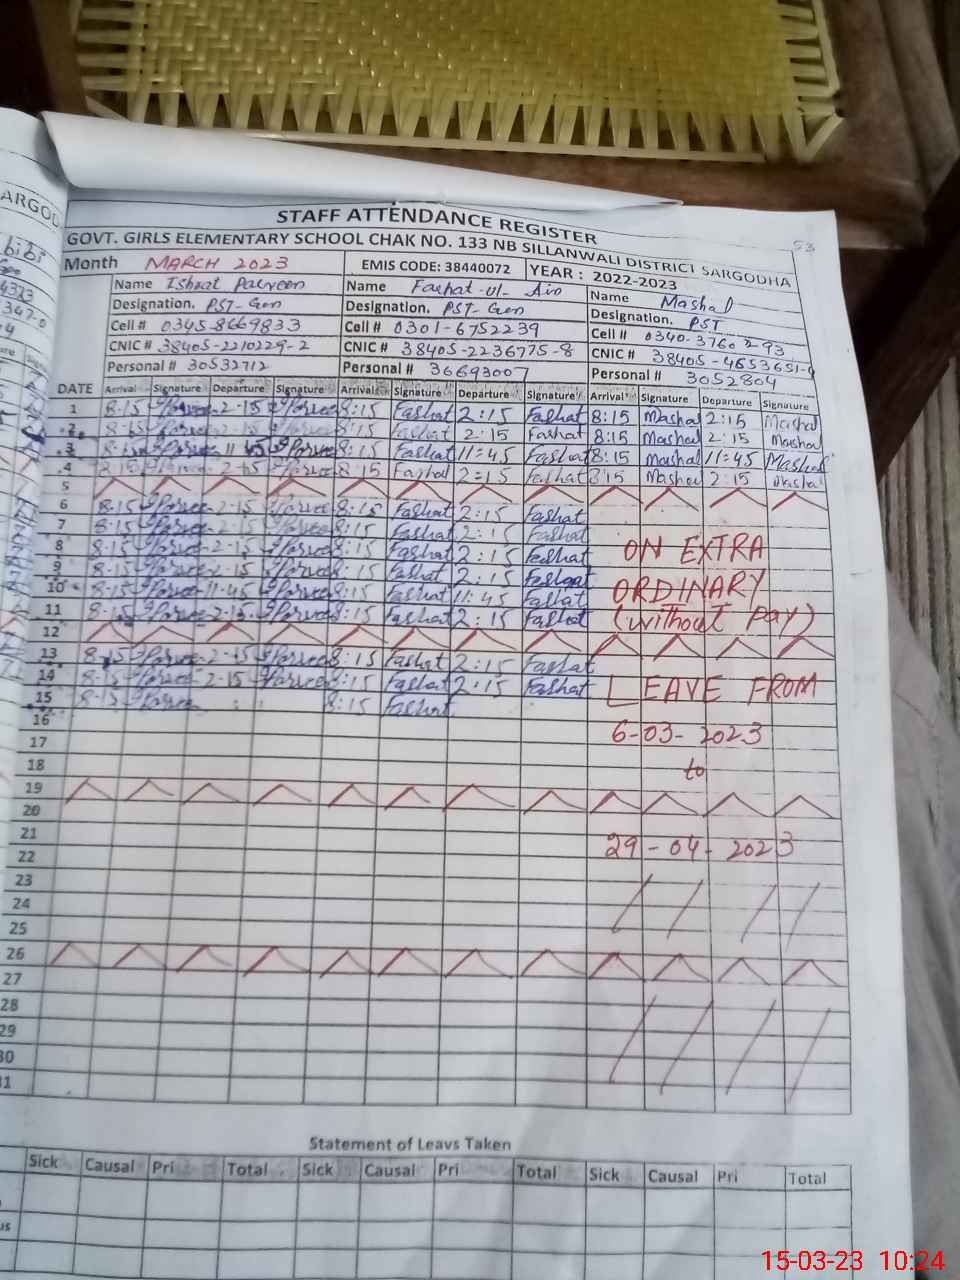 STAFF ATTENDANCE REGISTER
53
GOVT. GIRLS ELEMENTARY SCHOOL CHAK NO. 133 NB SILLANWALI DISTRICT SARGODHA
Month MARCH 2023 EMIS CODE: 38440072 YEAR : 2022-2023
Name Ishrat Parveen Name Farhat-ul-Ain Name Mashal
Designation. PST-Gen Designation. PST-Gen Designation. PST
Cell # 0345-8669833 Cell # 0301-6752239 Cell # 0340-3760293
CNIC # 38405-2210229-2 CNIC # 38405-2236775-8 CNIC # 38405-4653651-
Personal # 30532712 Personal # 36693007 Personal # 3052804
DATE Arrival Signature Departure Signature Arrival Signature Departure Signature Arrival Signature Departure Signature
1 8:15 2-15 8:15 Farhat 2:15 Farhat 8:15 Mashal 2:15 Mashal
2 8-15 2-15 8:15 Farhat 2:15 Farhat 8:15 Mashal 2:15 Mashal
3 8-15 11-45 8:15 Farhat 11:45 Farhat 8:15 Mashal 11:45 Mashal
4 8-15 2-15 8:15 Farhat 2:15 Farhat 8:15 Mashal 2:15 Mashal
5
6 8-15 2-15 8:15 Farhat 2:15 Farhat
7 8-15 2-15 8:15 Farhat 2:15 Farhat
8 8-15 2-15 8:15 Farhat 2:15 Farhat ON EXTRA
9 8-15 2-15 8:15 Farhat 2:15 Farhat
10 8-15 11-45 8:15 Farhat 11:45 Farhat ORDINARY
11 8-15 2-15 8:15 Farhat 2:15 Farhat (without Pay)
12
13 8-15 2-15 8:15 Farhat 2:15 Farhat
14 8-15 2-15 8:15 Farhat 2:15 Farhat LEAVE FROM
15 8-15 8:15 Farhat
16 6-03-2023
17
18 to
19
20
21 29-04-2023
22
23
24
25
26
27
28
29
30
31
Statement of Leavs Taken
Sick Causal Pri Total Sick Causal Pri Total Sick Causal Pri Total
15-03-23 10:24